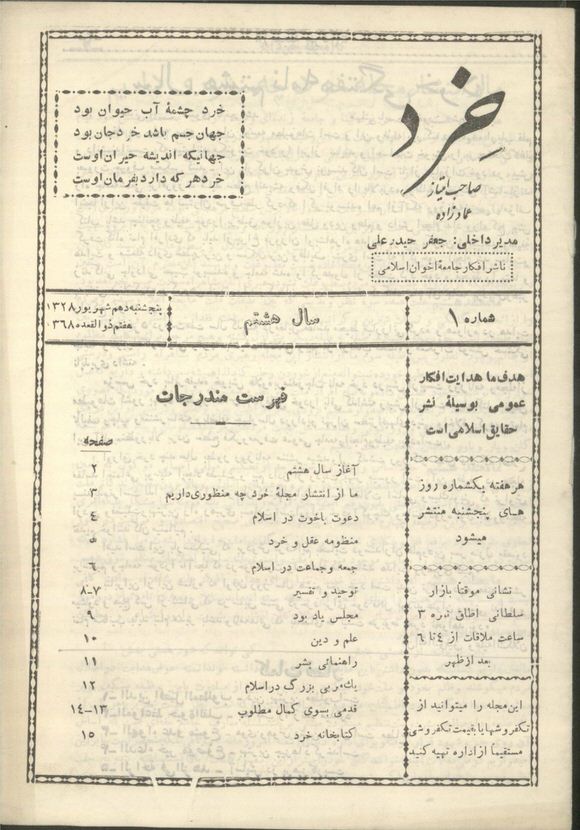 خرد
صاحب امتیاز
عمادزاده
مدیر داخلی: جعفر حیدرعلی
ناشر افکار جامعهٔ اخوان اسلامی
خرد چشمهٔ آب حیوان بود
جهان جسم باشد خرد جان بود
جهانیکه اندیشه حیران اوست
خرد هر که دارد بفرمان اوست
شماره ۱
سال هشتم
پنجشنبه دهم شهریور ۱۳۲۸
هفتم ذوالقعده ۱۳۶۸
هدف ما هدایت افکار
عمومی بوسیلهٔ نشر
حقایق اسلامی است
هر هفته یکشماره روز
های پنجشنبه منتشر
میشود
نشانی موقتاً بازار
سلطانی اطاق نمره ۳
ساعت ملاقات از ۴ تا ۶
بعد از ظهر
این مجله را میتوانید از
تکفروشها با قیمت تکفروشی
مستقیماً از اداره تهیه کنید
فهرست مندرجات
صفحه
آغاز سال هشتم ۲
ما از انتشار مجلهٔ خرد چه منظوری داریم ۳
دعوت باخوت در اسلام ۴
منظومه عقل و خرد ۵
جمعه وجماعت در اسلام ۶
توحید و تفسیر ۷-۸
مجلس یاد بود ۹
علم و دین ۱۰
راهنمائی بشر ۱۱
یك مربی بزرگ در اسلام ۱۲
قدمی بسوی کمال مطلوب ۱۳-۱۴
کتابخانه خرد ۱۵